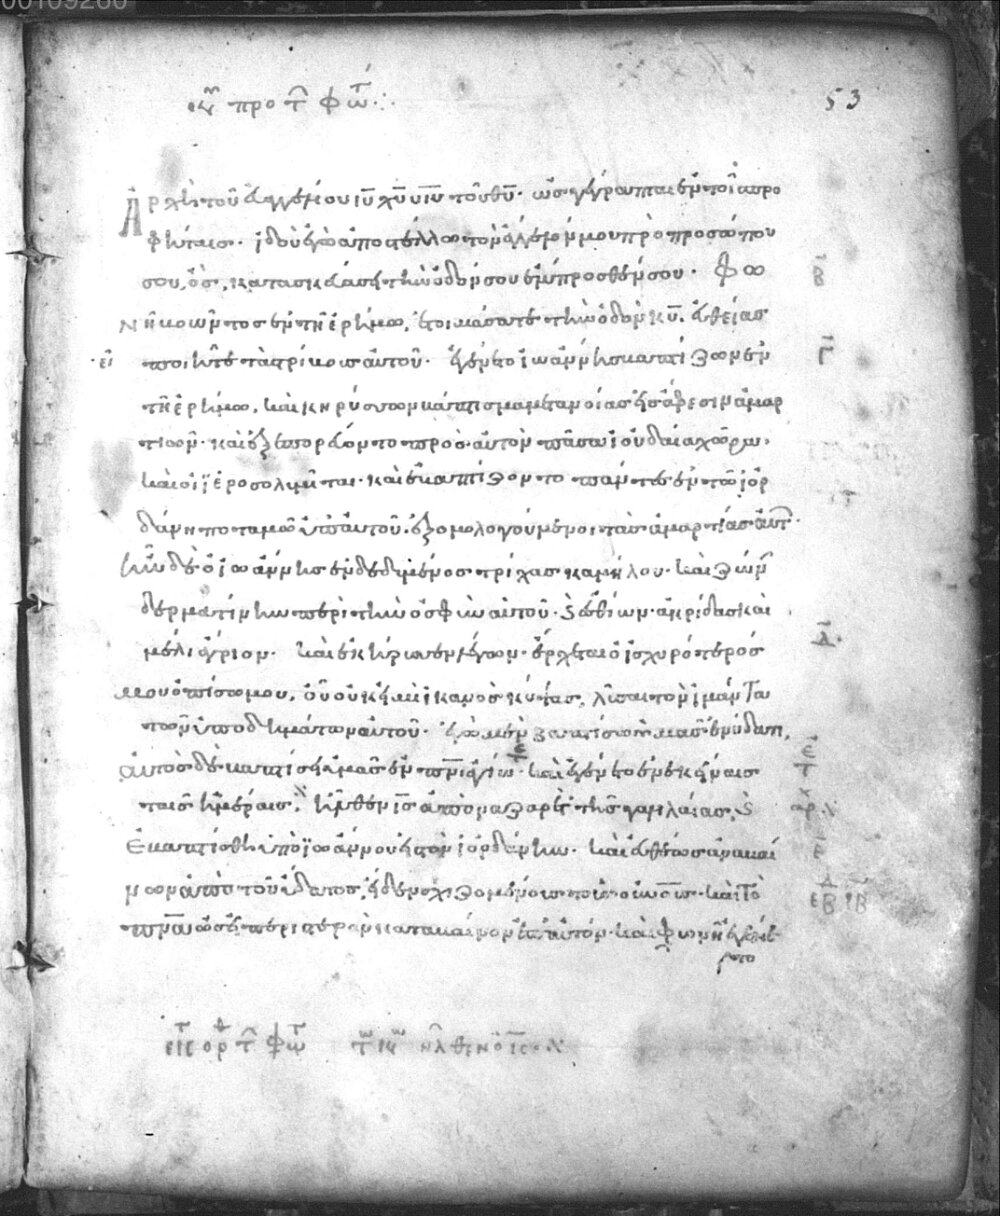 00109260
53
προ τ φω
Ἀρχὴ τοῦ εὐαγγελίου ιυ χυ υιυ τοῦ θυ· ὡς γέγραπται ἐν τοῖς προ
φήταις· ἰδοὺ ἐγὼ ἀποστέλλω τὸν ἄγγελόν μου πρὸ προσώπου
σου, ὃς κατασκευάσει τὴν ὁδόν σου ἔμπροσθέν σου· Φω
νὴ βοῶντος ἐν τῇ ἐρήμω, ἑτοιμάσατε τὴν ὁδὸν κυ· εὐθείας
ποιεῖτε τὰς τρίβους αὐτοῦ· ἐγένετο ἰωάννης βαπτίζων ἐν
τῇ ἐρήμω, καὶ κηρύσσων βάπτισμα μετανοίας εἰς ἄφεσιν ἁμαρ
τιῶν· καὶ ἐξεπορεύοντο πρὸς αὐτὸν πᾶσα ἡ ἰουδαία χώρα,
καὶ οἱ ἱεροσολυμῖται· καὶ ἐβαπτίζοντο πάντες ἐν τῶ ἰορ
δάνη ποταμῶ ὑπ αὐτοῦ· ἐξομολογούμενοι τὰς ἁμαρτίας αὐτ·
ἦν δὲ ὁ ἰωάννης ἐνδεδυμένος τρίχας καμήλου· καὶ ζών
δερματίνην περὶ τὴν ὀσφὺν αὐτοῦ· ἐσθίων ἀκρίδας καὶ
μέλι ἄγριον· καὶ ἐκήρυσσεν λέγων· ἔρχεται ὁ ἰσχυρότερός
μου ὀπίσω μου, οὗ οὐκ εἰμὶ ἱκανὸς κύψας, λῦσαι τὸν ἱμάντα
τῶν ὑποδημάτων αὐτοῦ· ἐγὼ μὲν ἐβάπτισα ὑμᾶς ἐν ὕδατι,
αὐτὸς δὲ βαπτίσει ὑμᾶς ἐν πνι ἁγίω· καὶ ἐγένετο ἐν ἐκείναις
ταῖς ἡμέραις, ἦλθεν ις ἀπὸ ναζαρὲτ τῆς γαλιλαίας,
ἐβαπτίσθη ὑπὸ ἰωάννου εἰς τὸν ἰορδάνην· καὶ εὐθέως ἀναβαί
νων ἀπὸ τοῦ ὕδατος, εἶδεν σχιζομένους τοὺς οὐνους· καὶ τὸ
πνα ὡσεὶ περιστερὰν καταβαῖνον ἐπ αὐτόν· καὶ φωνὴ ἐγένε
το